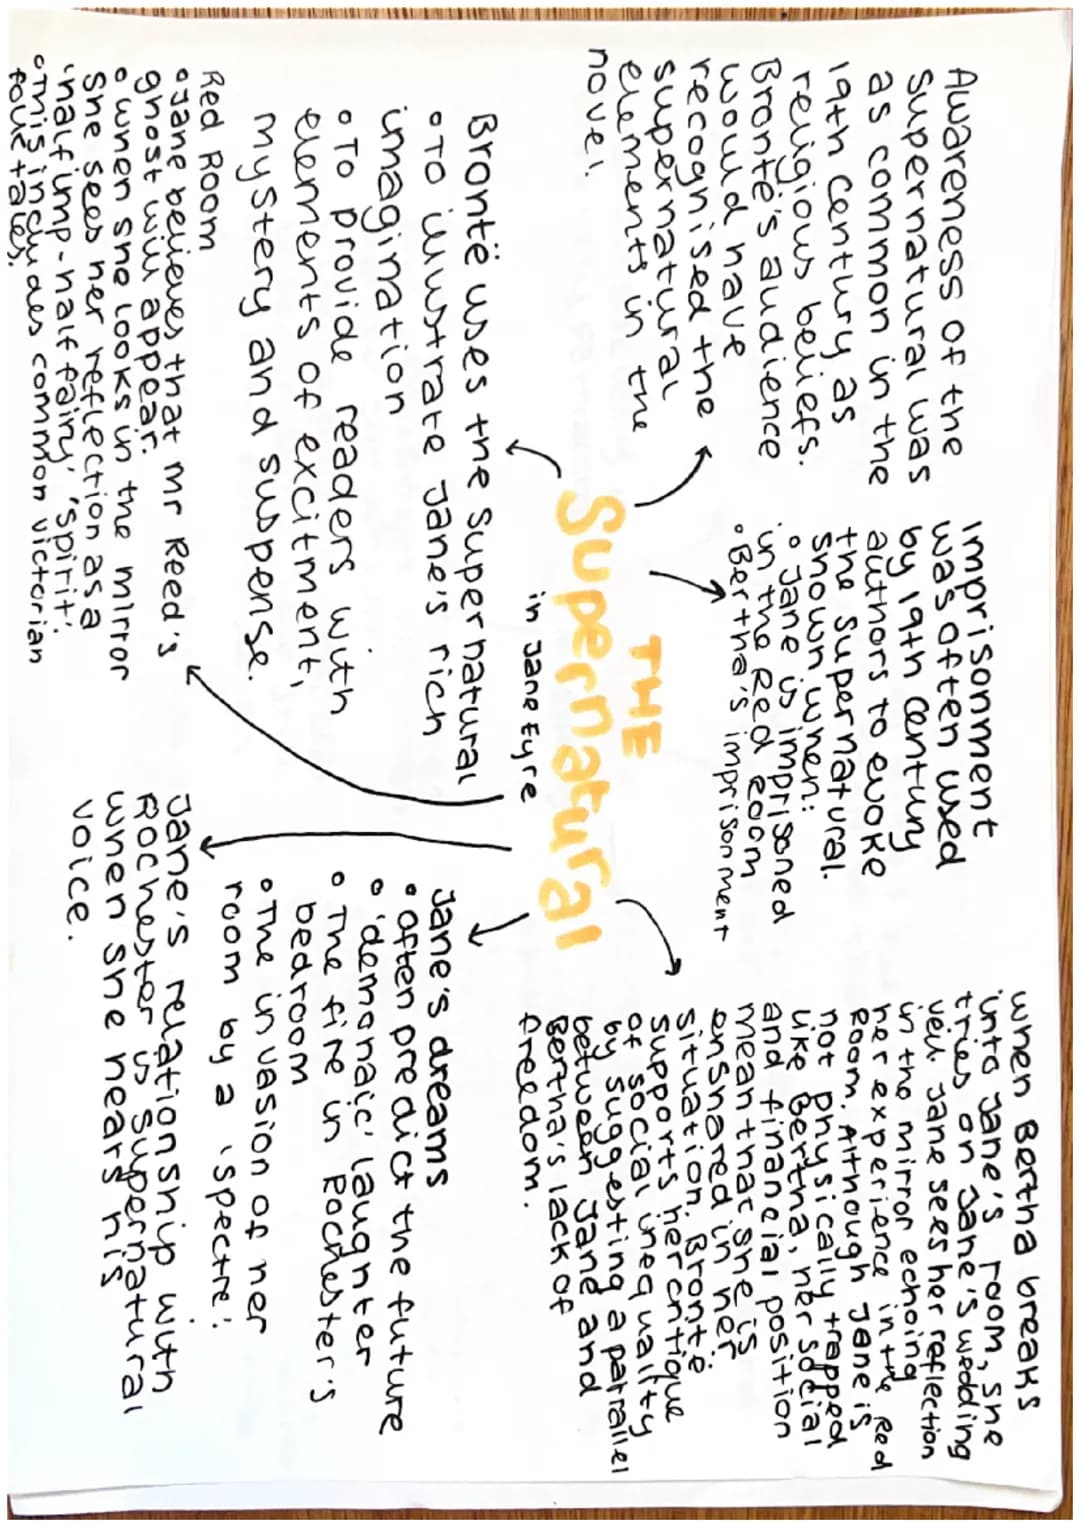 Awareness of the
supernatural was
as common in the
19th century as
religious beliefs.
Brontë's audience
would have
recognised the
supernatural
elements in the
novel.
imprisonment
was often used
by 19th century
authors to evoke
the supernatural.
Shown when:
• Jane is imprisoned
in the Red Room
• Bertha's imprisonment
When Bertha breaks
into Jane's room, she
tries on Jane's wedding
veil. Jane sees her reflection
in the mirror echoing
her experience in the Red
Room. Although Jane is
not physically trapped
like Bertha, her social
and financial position
mean that she is
ensnared in her
situation. Bronte
supports her critique
of social inequality
by suggesting a parallel
between Jane and
Bertha's lack of
freedom.
THE
Supernatural
in Jane Eyre
Brontë uses the supernatural
• To illustrate Jane's rich
imagination
• To provide readers with
elements of excitment,
mystery and suspense.
Jane's dreams
• Often predict the future
• 'demonaic' laughter
• The fire in Rochester's
bedroom
• The invasion of her
room by a 'spectre'.
Red Room
• Jane believes that Mr Reed's
ghost will appear.
• When she looks in the mirror
she sees her reflection as a
'half imp-half fairy', 'spirit'.
• This includes common victorian
folk tales.
Jane's relationship with
Rochester is supernatural
when she hears his
voice.